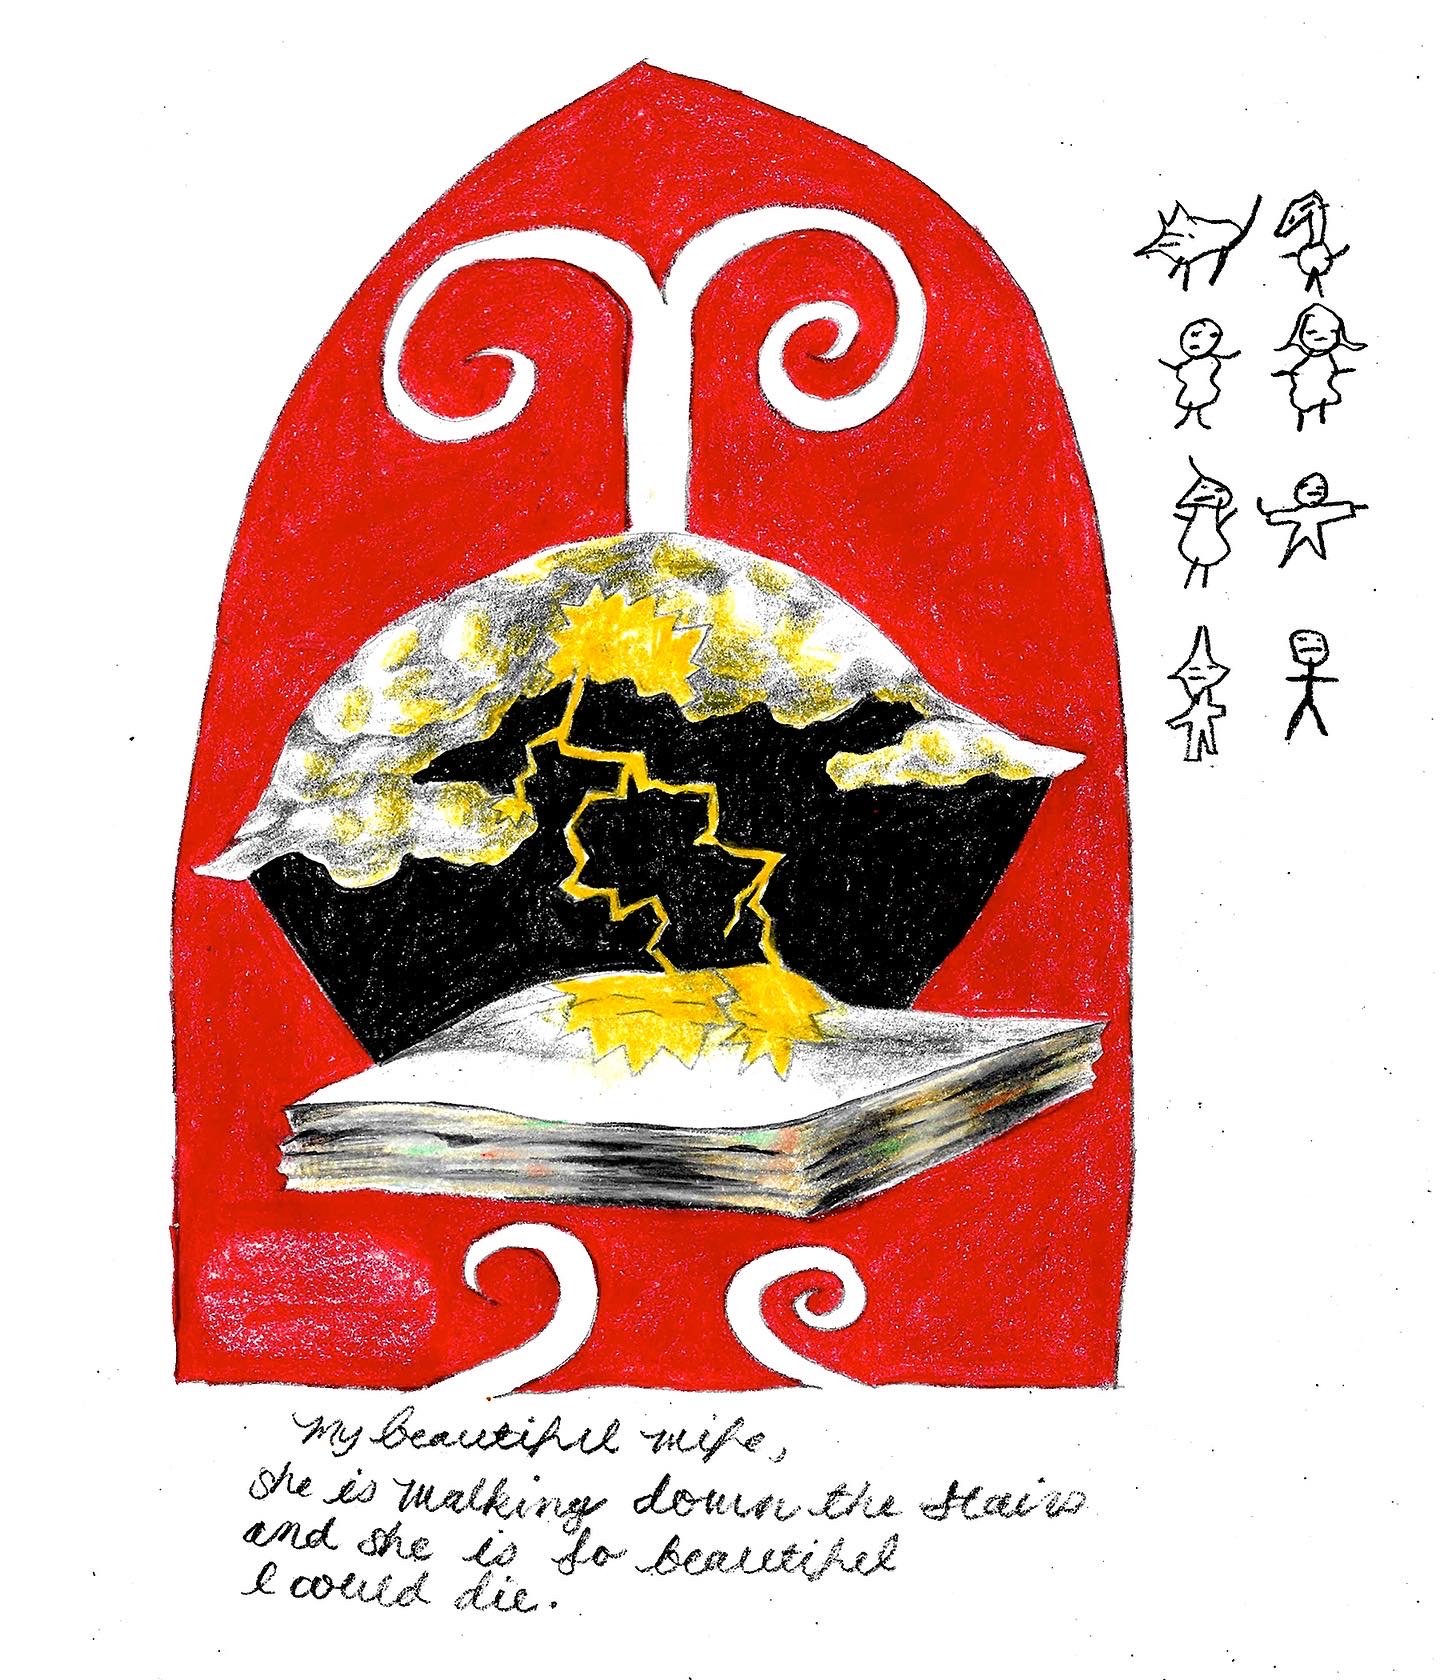 My beautiful wife,
she is walking down the stairs
and she is so beautiful
I could die.